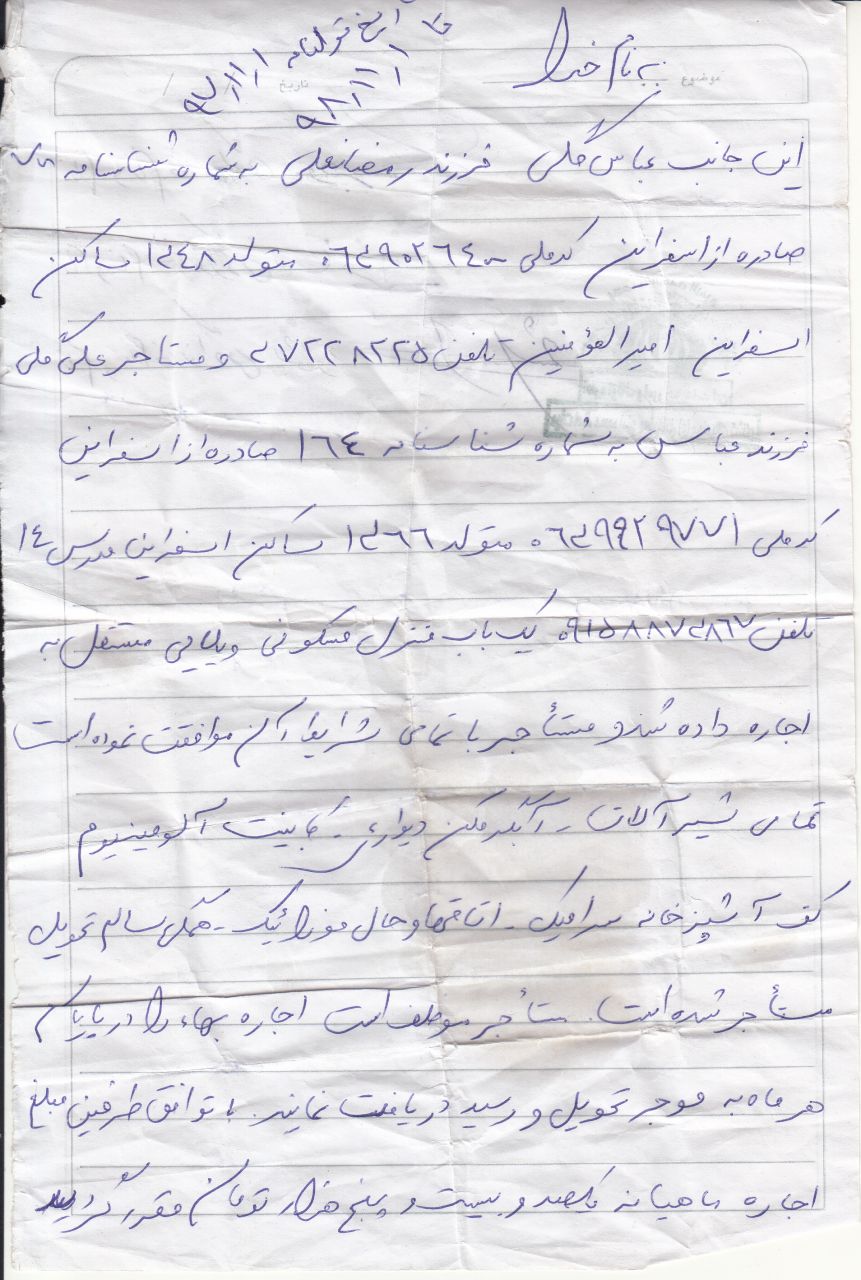 به نام خدا
موضوع
تاریخ
تاریخ قولنامه ۹۷/۱/۱
تا ۹۸/۱/۱
این جانب عباس گلی فرزند رمضانعلی به شماره شناسنامه
صادره از اسفراین کد ملی متولد ۱۳۴۸ ساکن
اسفراین امیرالمؤمنین تلفن ۳۷۲۲۸۲۲۵ و مستاجر علی گلی
فرزند عباس به شماره شناسنامه ۱۶۴ صادره از اسفراین
کد ملی متولد ۱۳۶۶ ساکن اسفراین مدرس ۱۴
تلفن ۰۹۱۵۸۸۷۳۸۶۷ یک باب منزل مسکونی ویلایی مستقل به
اجاره داده شد و مستأجر با تمامی شرایط آن موافقت نموده است
تمامی شیرآلات - آبگرمکن دیواری - کابینت آلومینیوم
کف آشپزخانه سرامیک - اتاقها و حال موزائیک - همگی سالم تحویل
مستأجر شده است. مستأجر موظف است اجاره بهاء را در پایان
هر ماه به موجر تحویل و رسید دریافت نماید. با توافق طرفین مبلغ
اجاره ماهیانه یکصد و بیست و پنج هزار تومان مقرر گردید